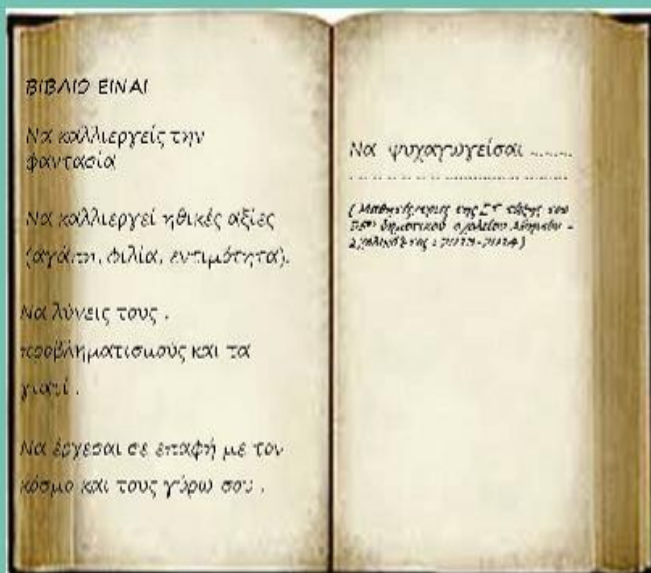 ΒΙΒΛΙΟ ΕΙΝΑΙ
Να καλλιεργείς την
φαντασία
Να καλλιεργεί ηθικές αξίες
(αγάπη, φιλία, εντιμότητα).
Να λύνεις τους .
προβληματισμούς και τα
γιατί .
Να έρχεσαι σε επαφή με τον
κόσμο και τους γύρω σου .
Να ψυχαγωγείσαι ........
.. .. .. .. .. .. .................. ..........
της ΣΤ' τάξης του
δημοτικού σχολείου Αθηνών -
2013-2014)